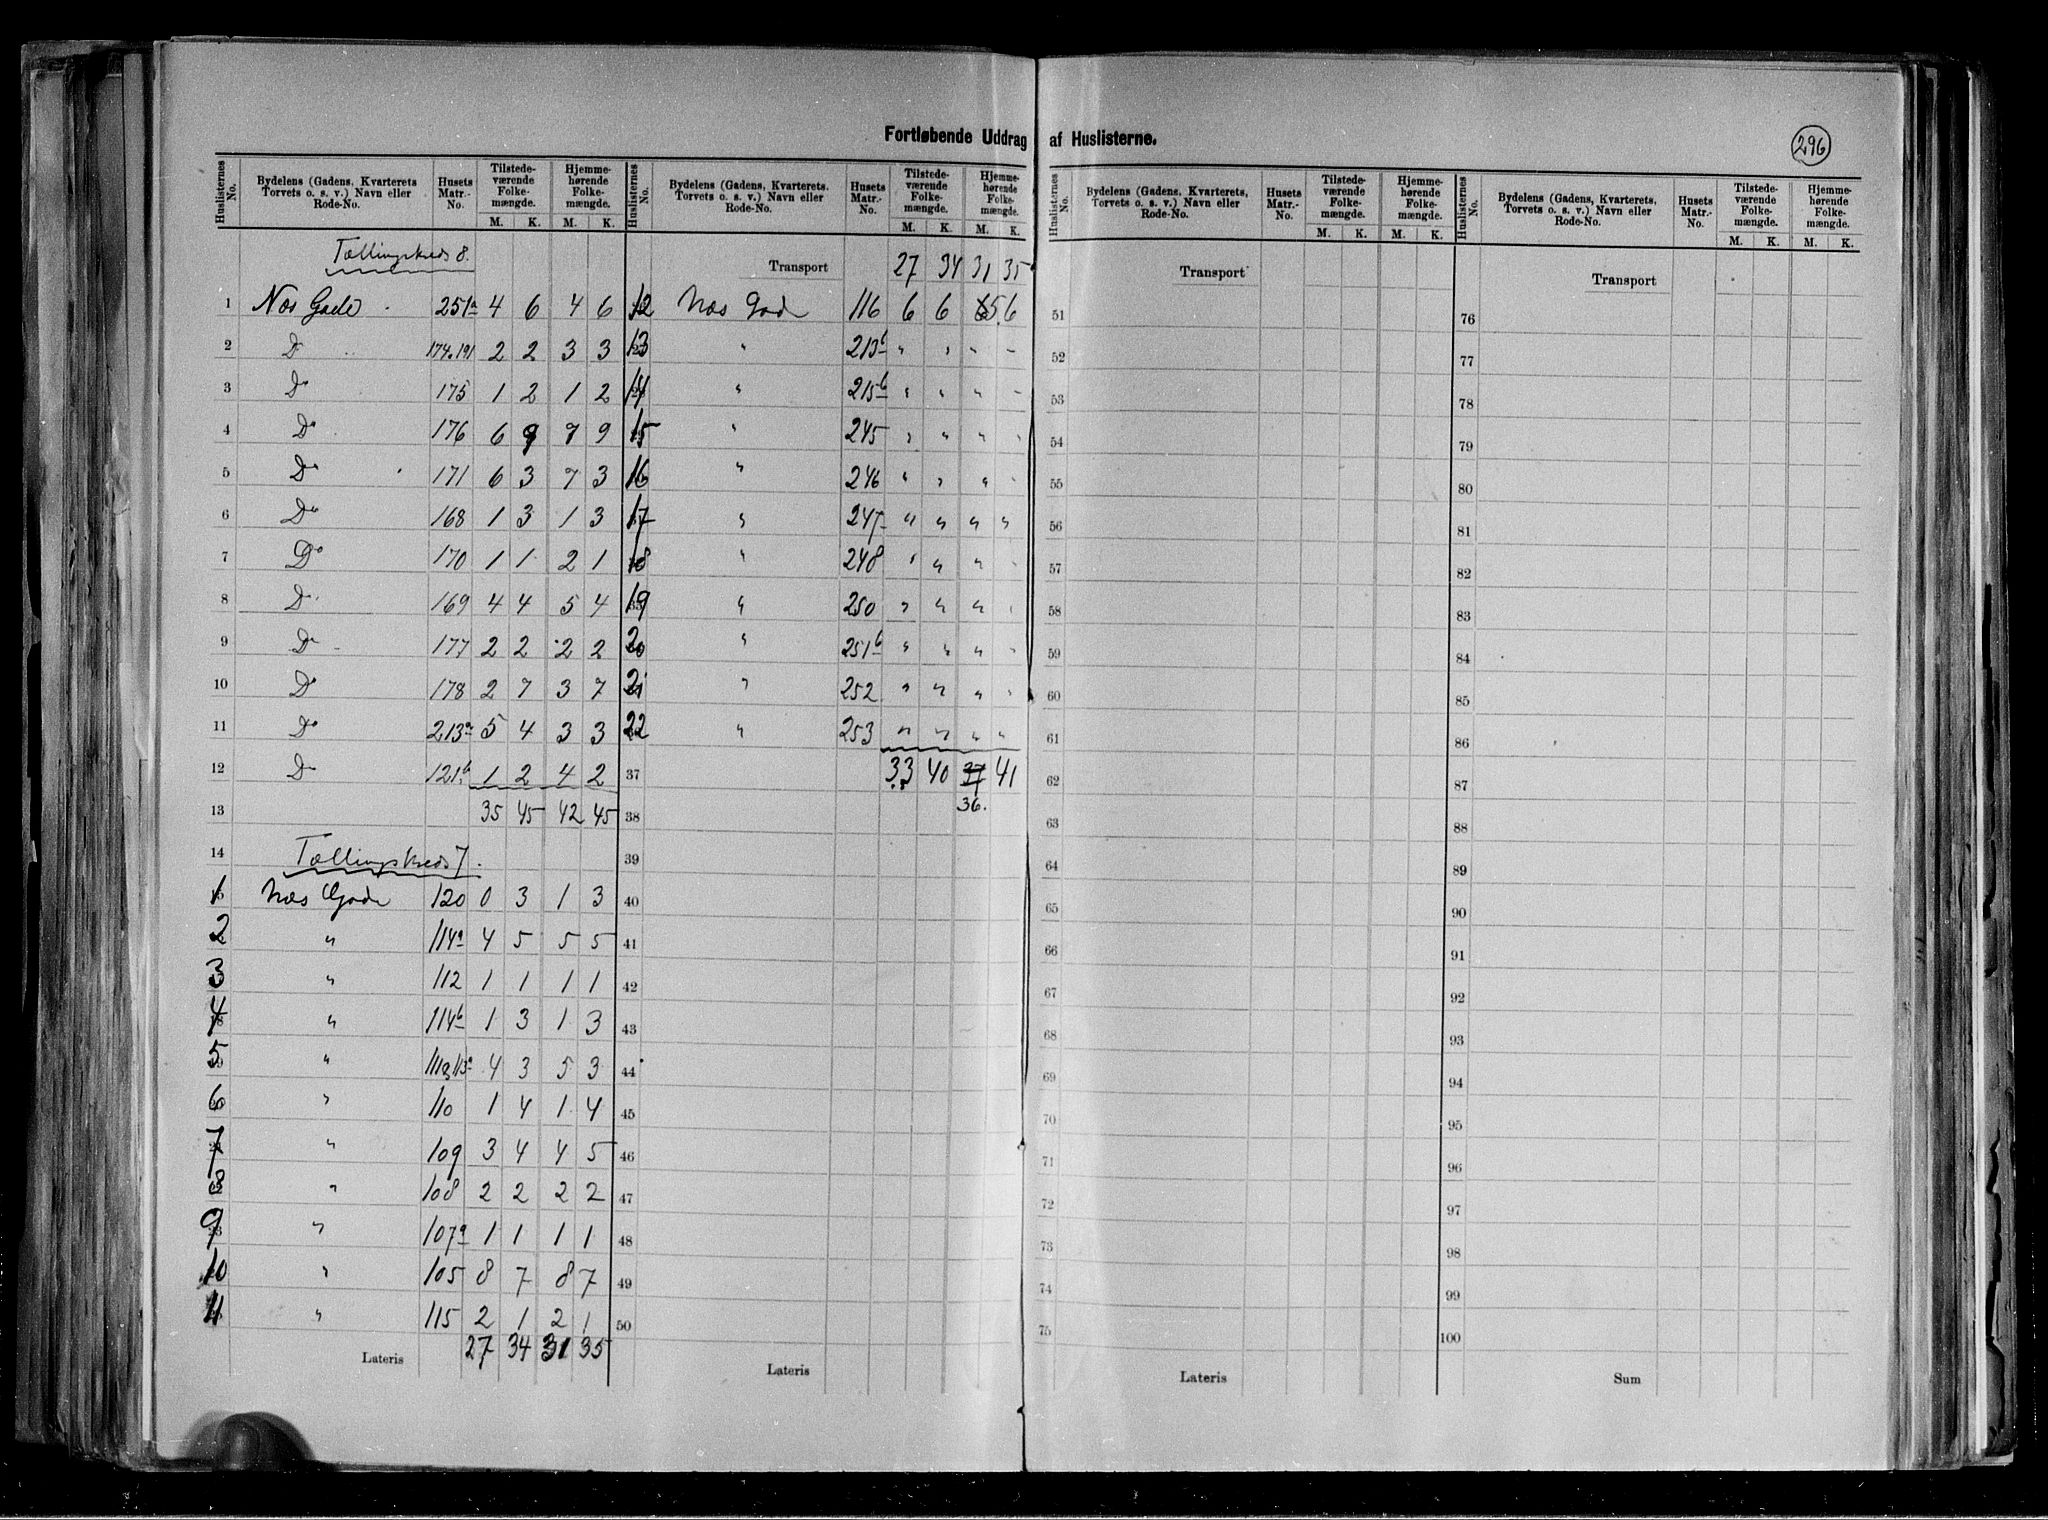 Fortløbende Uddrag af Huslisterne.
296
Huslisternes No. | Bydelens (Gadens, Kvarterets Torvets o. s. v.) Navn eller Rode-No. | Husets Matr.-No. | Tilstede-værende Folke-mængde. M. K. | Hjemme-hørende Folke-mængde. M. K.
Tællingskreds 8.
1 Næs Gade 251a 4 6 4 6
2 Do 174.191 2 2 3 3
3 Do 175 1 2 1 2
4 Do 176 6 9 7 9
5 Do 171 6 3 7 3
6 Do 168 1 3 1 3
7 Do 170 1 1 2 1
8 Do 169 4 4 5 4
9 Do 177 2 2 2 2
10 Do 178 2 7 3 7
11 Do 213a 5 4 3 3
12 Do 121b 1 2 4 2
13 35 45 42 45
14 Tællingskreds 7.
1 Næs Gade 120 0 3 1 3
2 " 114a 4 5 5 5
3 " 112 1 1 1 1
4 " 114b 1 3 1 3
5 " 4 3 5 3
6 " 110 1 4 1 4
7 " 109 3 4 4 5
8 " 108 2 2 2 2
9 " 107a 1 1 1 1
10 " 105 8 7 8 7
11 " 115 2 1 2 1
Lateris 27 34 31 35
Huslisternes No. | Bydelens (Gadens, Kvarterets. Torvets o. s. v.) Navn eller Rode-No. | Husets Matr.-No. | Tilstede-værende Folke-mængde. M. K. | Hjemme-hørende Folke-mængde. M. K.
Transport 27 34 31 35
12 Næs Gade 116 6 6 5 6
13 " 213b " " " "
14 " 215b " " " "
15 " 245 " " " "
16 " 246 " " " "
17 " 247 " " " "
18 " 248 " " " "
19 " 250 " " " "
20 " 251b " " " "
21 " 252 " " " "
22 " 253 " " " "
37 33 40 37 41
38 36.
39
40
41
42
43
44
45
46
47
48
49
50
Lateris
Huslisternes No. | Bydelens (Gadens, Kvarterets, Torvets o. s. v.) Navn eller Rode-No. | Husets Matr.-No. | Tilstede-værende Folke-mængde. M. K. | Hjemme-hørende Folke-mængde. M. K.
Transport
51
52
53
54
55
56
57
58
59
60
61
62
63
64
65
66
67
68
69
70
71
72
73
74
75
Lateris
Huslisternes No. | Bydelens (Gadens, Kvarterets, Torvets o. s. v.) Navn eller Rode-No. | Husets Matr.-No. | Tilstede-værende Folke-mængde. M. K. | Hjemme-hørende Folke-mængde. M. K.
Transport
76
77
78
79
80
81
82
83
84
85
86
87
88
89
90
91
92
93
94
95
96
97
98
99
100
Sum